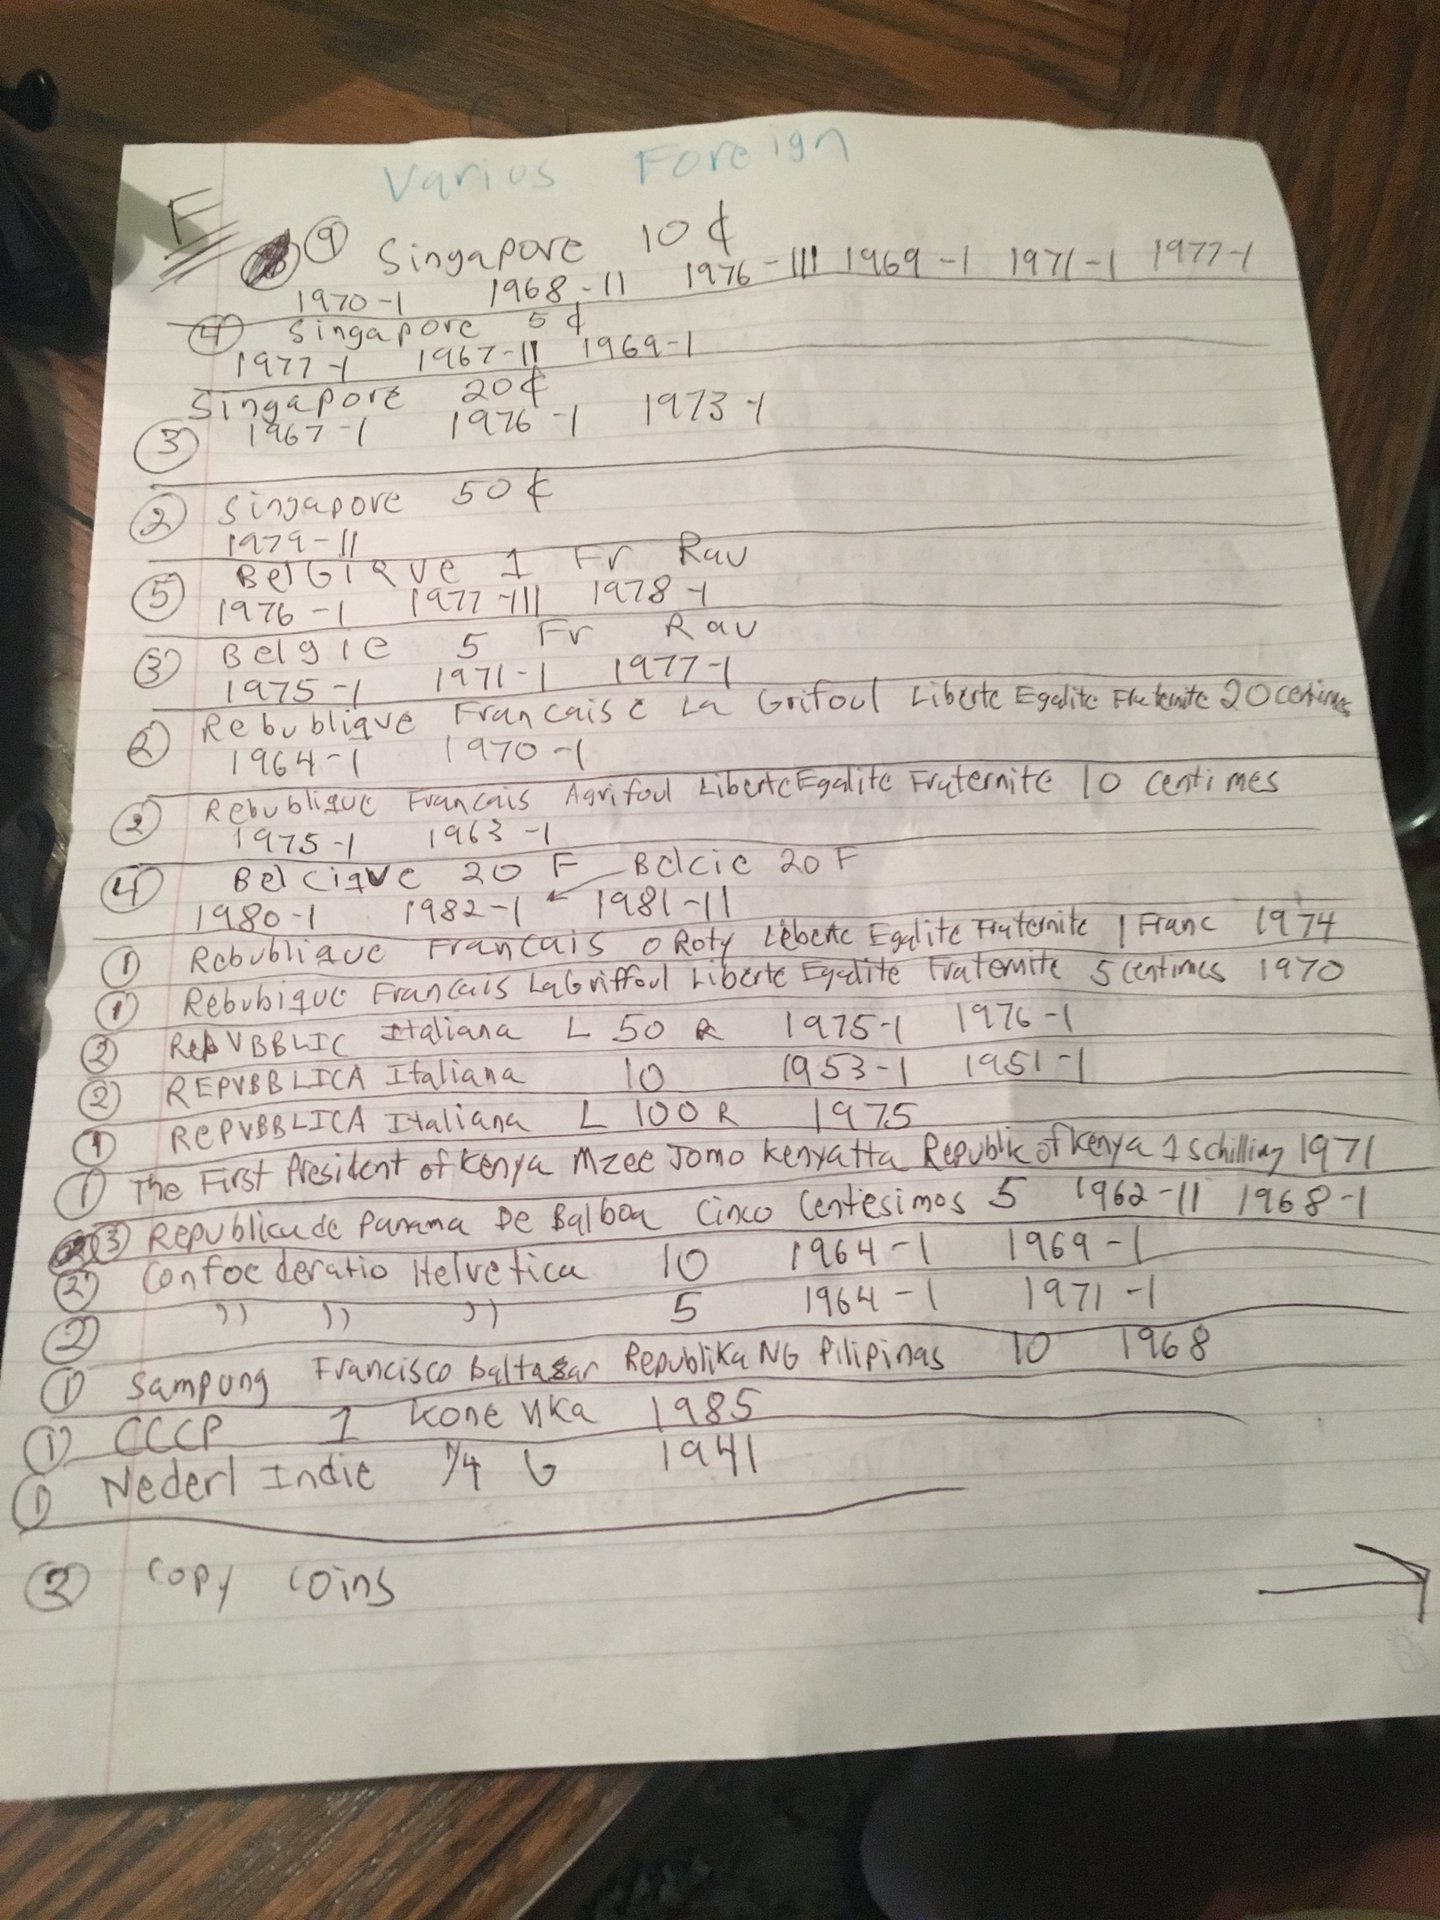 Varius Foreign
F
9 Singapore 10 ¢
1970-I 1968-II 1976-III 1969-I 1971-I 1977-I
4 Singapore 5 ¢
1977-I 1967-II 1969-I
Singapore 20¢
3 1967-I 1976-I 1973-I
2 Singapore 50¢
1979-II
BelGIQUe 1 Fr Rau
5 1976-I 1977-III 1978-I
Belgie 5 Fr Rau
3 1975-I 1971-I 1977-I
Rebublique Francaise La Grifoul Liberte Egalite Fraternite 20 centimes
2 1964-I 1970-I
Rebublique Francais Agrifoul Liberte Egalite Fraternite 10 centimes
2 1975-I 1963-I
4 Belcique 20 F Belcie 20 F
1980-I 1982-I 1981-II
1 Rebublique Francais O Roty Leberte Egalite Fraternite 1 Franc 1974
1 Rebubique Francais LaGriffoul Liberte Egalite Fraternite 5 centimes 1970
2 RepVBBLIC Italiana L 50 R 1975-I 1976-I
2 REPVBBLICA Italiana 10 1953-I 1951-I
1 REPVBBLICA Italiana L 100 R 1975
1 The First President of Kenya Mzee Jomo Kenyatta Republic of Kenya 1 schilling 1971
3 Republica de Panama De Balboa Cinco Centesimos 5 1962-II 1968-I
2 Confoederatio Helvetica 10 1964-I 1969-I
2 " " " 5 1964-I 1971-I
1 Sampung Francisco Baltazar Republika NG Pilipinas 10 1968
1 CCCP 1 Kone ᴎKa 1985
1 Nederl Indie 1/4 G 1941
2 Copy Coins